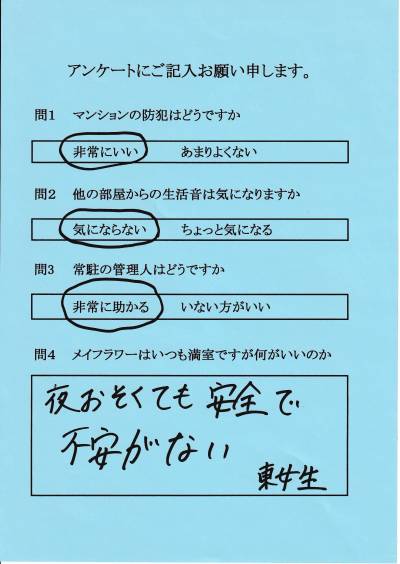 アンケートにご記入お願い申します。
問1 マンションの防犯はどうですか
非常にいい あまりよくない
問2 他の部屋からの生活音は気になりますか
気にならない ちょっと気になる
問3 常駐の管理人はどうですか
非常に助かる いない方がいい
問4 メイフラワーはいつも満室ですが何がいいのか
夜おそくても安全で
不安がない
東女生